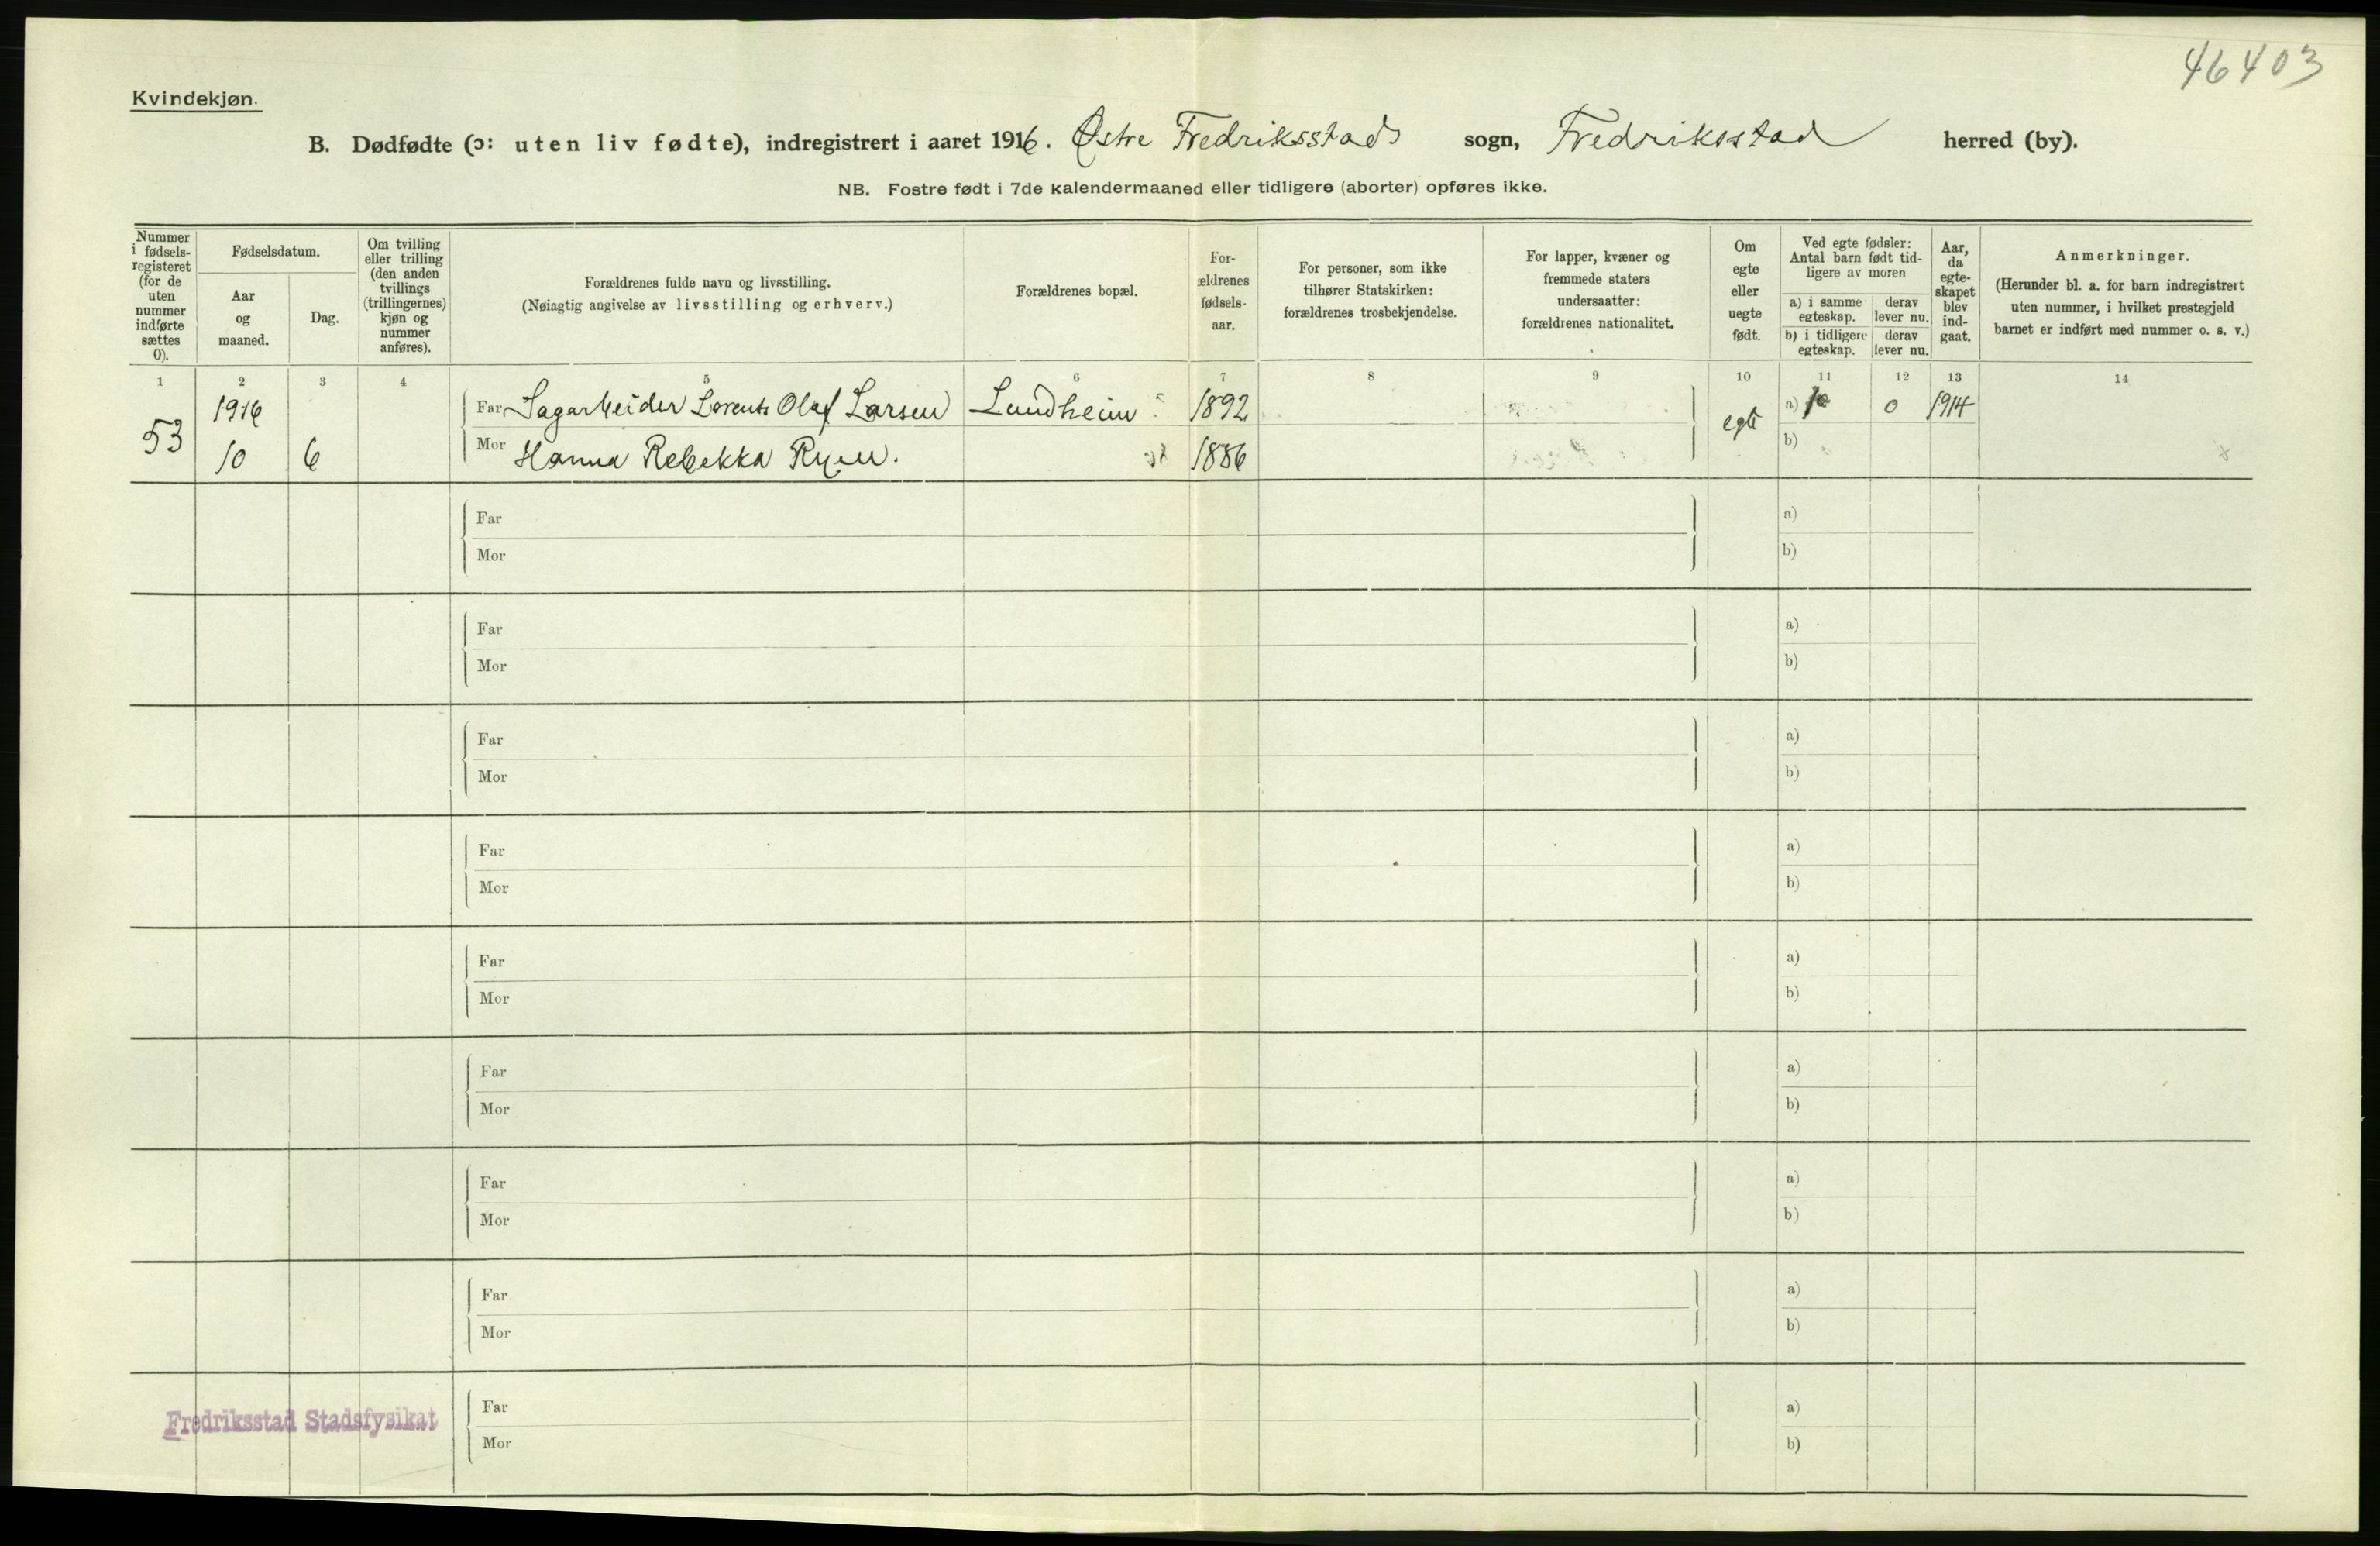 46403
Kvindekjøn.
B. Dødfødte (ɔ: uten liv fødte), indregistrert i aaret 1916. Østre Fredriksstads sogn, Fredriksstad herred (by).
NB. Fostre født i 7de kalendermaaned eller tidligere (aborter) opføres ikke.
Nummer
i fødsels-
registeret
(for de
uten
nummer
indførte
sættes
0).
Fødselsdatum.
Aar
og
maaned.
Dag.
Om tvilling
eller trilling
(den anden
tvillings
(trillingernes)
kjøn og
nummer
anføres).
Forældrenes fulde navn og livsstilling.
(Nøiagtig angivelse av livsstilling og erhverv.)
Forældrenes bopæl.
For-
ældrenes
fødsels-
aar.
For personer, som ikke
tilhører Statskirken:
forældrenes trosbekjendelse.
For lapper, kvæner og
fremmede staters
undersaatter:
forældrenes nationalitet.
Om
egte
eller
uegte
født.
Ved egte fødsler:
Antal barn født tid-
ligere av moren
a) i samme
egteskap.
derav
lever nu.
b) i tidligere
egteskap.
derav
lever nu.
Aar,
da
egte-
skapet
blev
ind-
gaat.
Anmerkninger.
(Herunder bl. a. for barn indregistrert
uten nummer, i hvilket prestegjeld
barnet er indført med nummer o. s. v.)
1 2 3 4 5 6 7 8 9 10 11 12 13 14
53 1916 10 6
Far Sagarbeider Lorents Olaf Larsen Lundheim 1892 egte a) 0 1914
Mor Hanna Rebekka Ryen. 1886 b)
Far a)
Mor b)
Far a)
Mor b)
Far a)
Mor b)
Far a)
Mor b)
Far a)
Mor b)
Far a)
Mor b)
Far a)
Mor b)
Far a)
Mor b)
Far a)
Mor b)
Fredriksstad Stadsfysikat